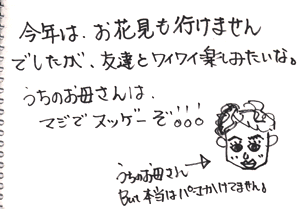 今年は、お花見も行けません
でしたが、友達とワイワイ楽しみたいな。
うちのお母さんは、
マジでヌッゲーぞ!!!
うちのお母さん
But 本当はパーマかけてません。